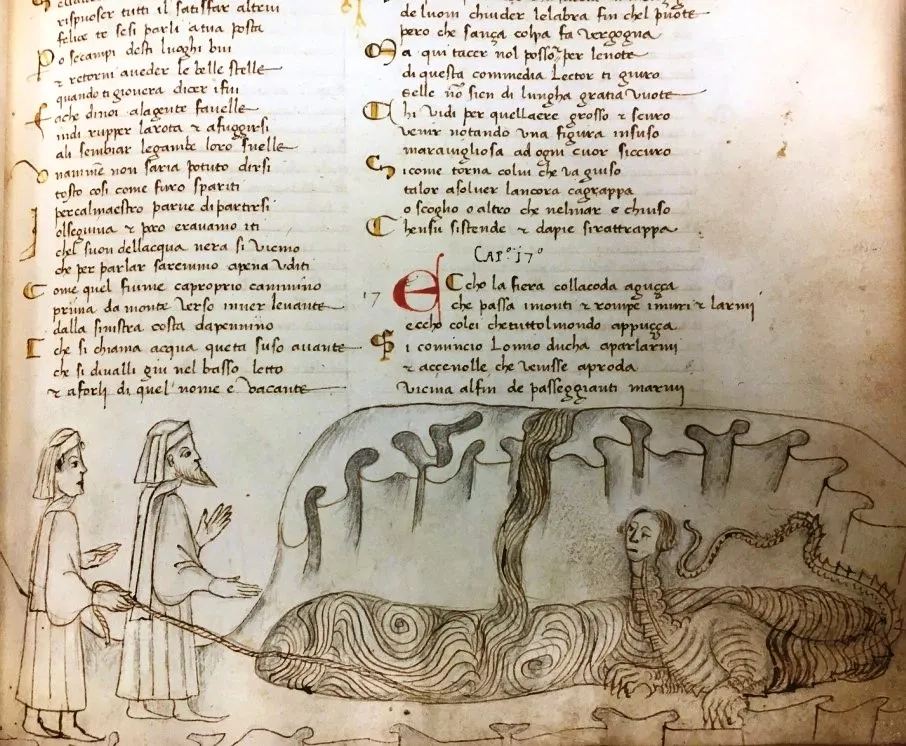 risposer tutti il satisffar altrui
felice te sesi parli atua posta
Po secampi desti luoghi bui
& retorni aveder le belle stelle
quando ti giovera dicer ifui
fache dinoi alagente favelle
indi rupper larota & afuggirsi
ali sembiar legambe loro snelle
Vnammen non saria potuto dirsi
tosto cosi come furo spariti
percalmaestro parve dipartirsi
Iolseguiva & poco eravamo iti
chel suon dellacqua nera si vicino
che per parlar saremmo apena uditi
Come quel fiume caproprio cammino
prima da monte verso inver levante
dalla sinistra costa dapennino
che si chiama acqua queta suso avante
che si divalli giu nel basso letto
& aforli di quel nome e vacante
de luom chiuder lelabra fin chel puote
pero che sança colpa fa vergogna
Ma qui tacer nol posso per lenote
di questa commedia Lector ti giuro
selle non sien di lungha gratia vuote
Chi vidi per quellaere grosso & scuro
venir notando una figura insuso
maravigliosa ad ogni cuor siccuro
Sicome torna colui che va giuso
talor asolver lancora cagrappa
o scoglio o altro che nelmar e chiuso
Chensu sistende & dapie sirattrappa
CAP° 17°
17 ECcho la fiera collacoda aguçça
che passa imonti & rompe imuri & larmi
ecche colei chetuttolmondo appuçça
Si comincio Lomio ducha aparlarmi
& accenolle che venisse aproda
vicina alfin de passeggianti marmi